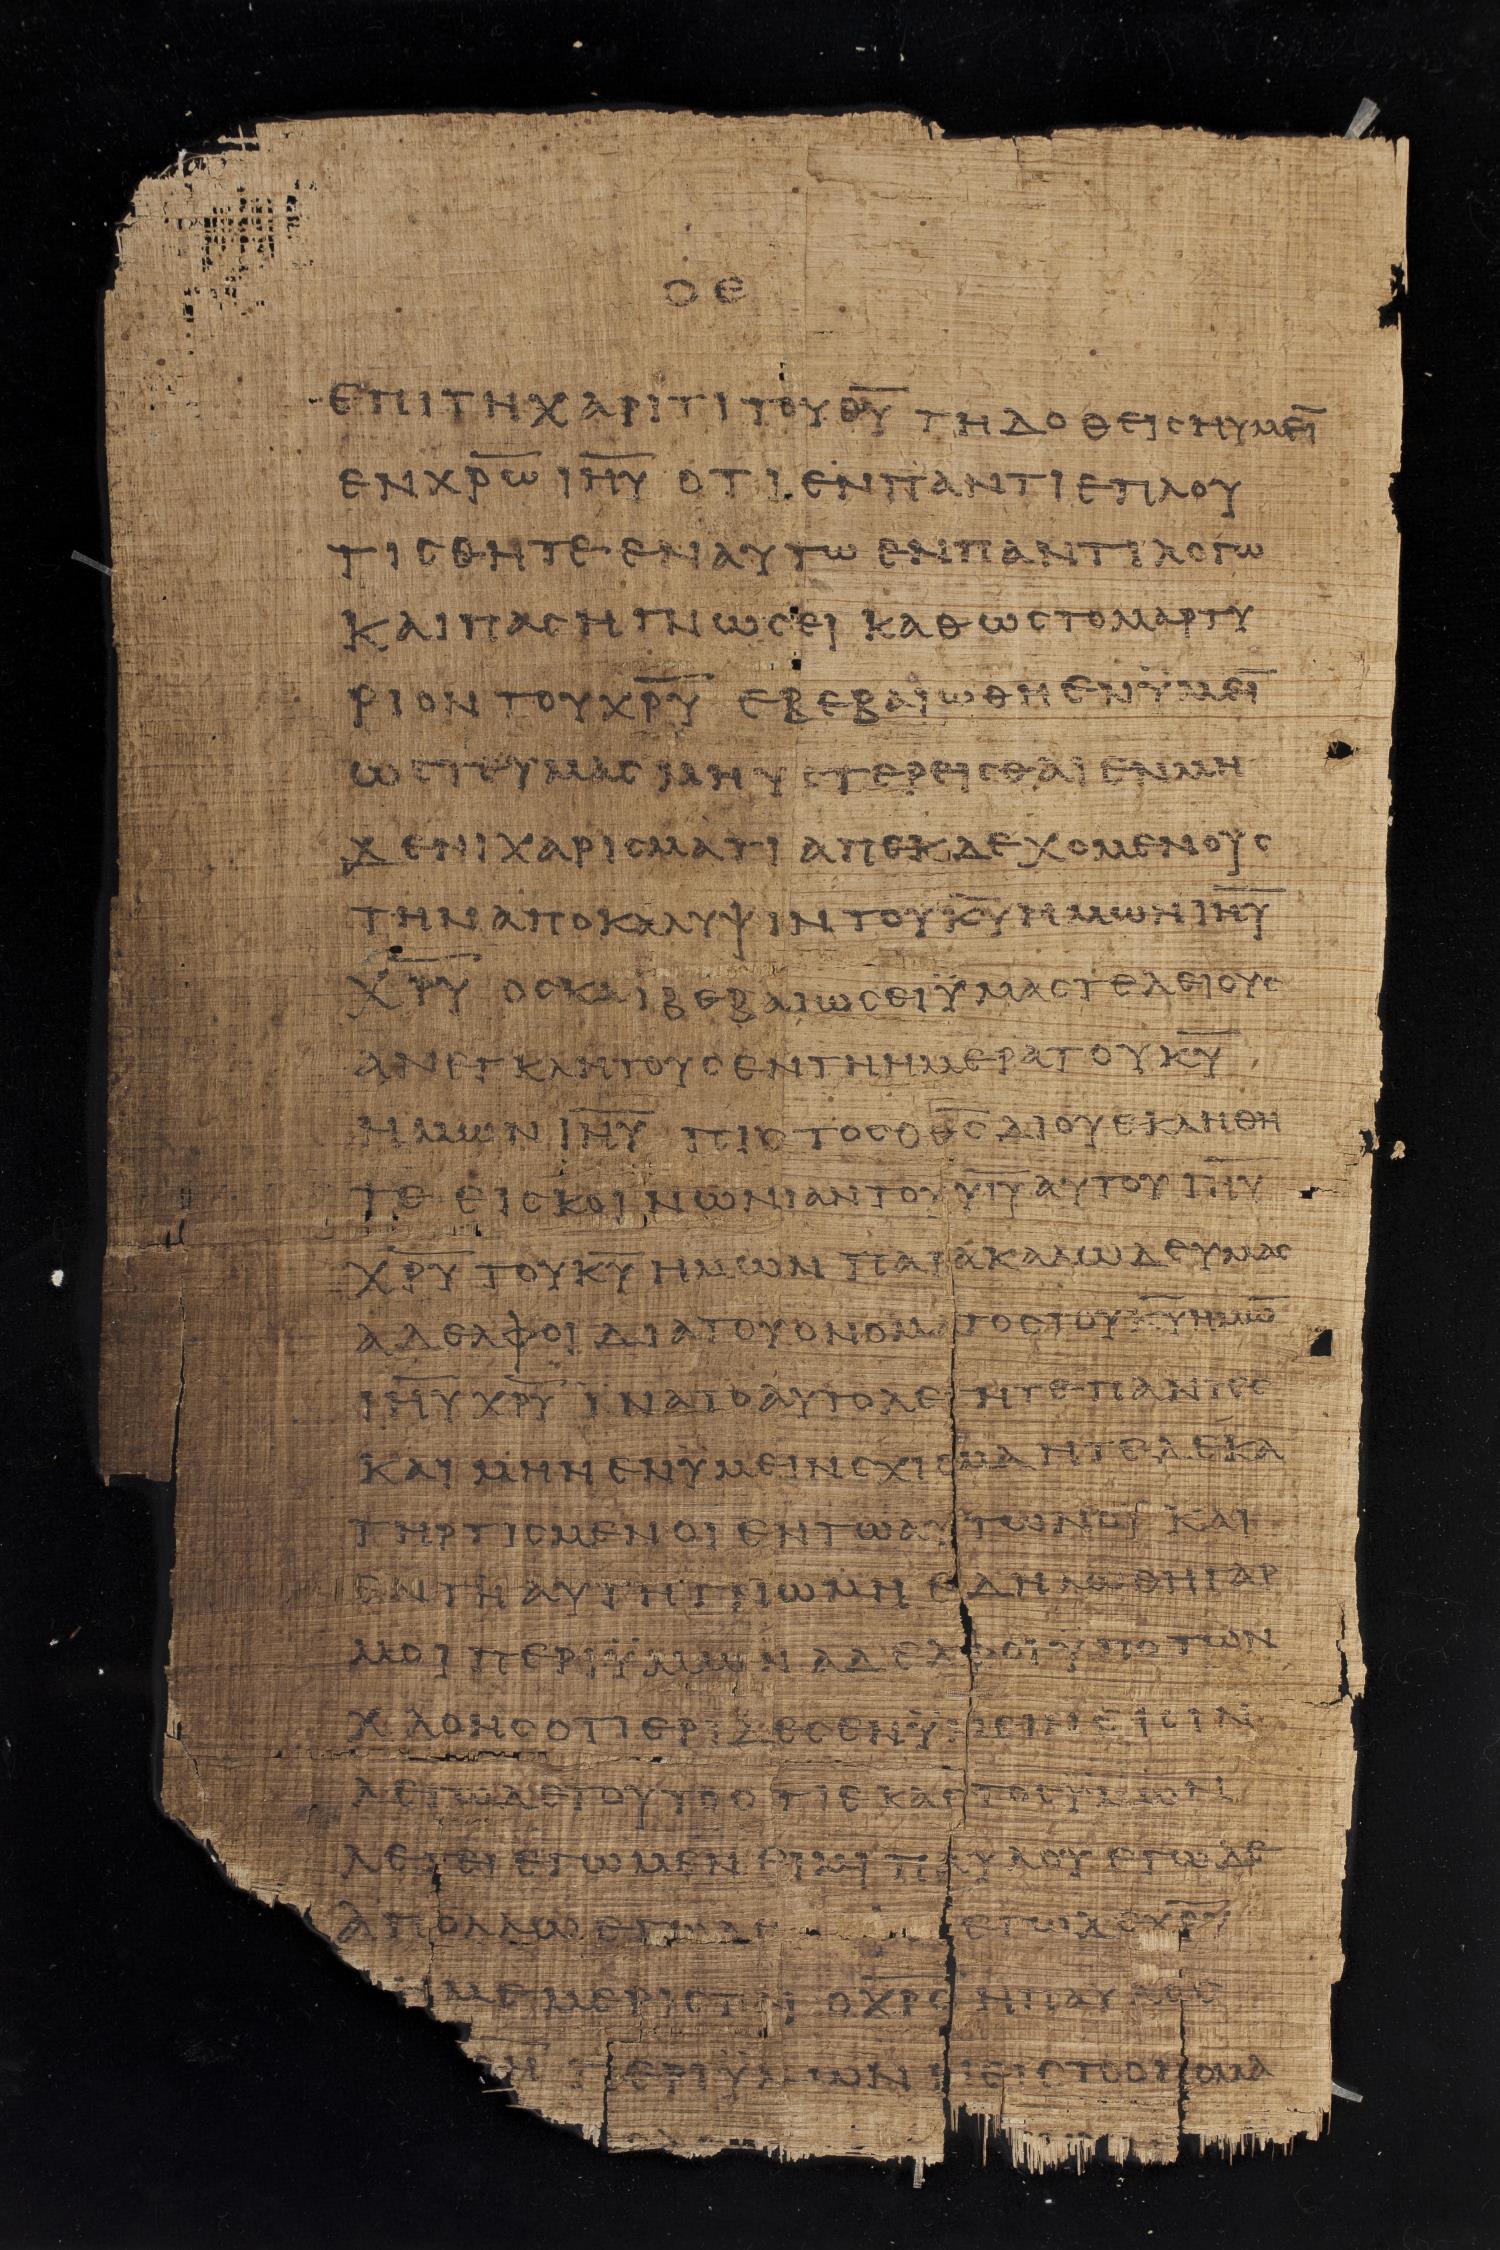 ΟΕ
ΕΠΙΤΗΧΑΡΙΤΙΤΟΥΘ̅Υ̅ ΤΗΔΟΘΕΙΣΗΥΜΕΙ̅
ΕΝΧ̅Ρ̅Ω̅ Ι̅Η̅Υ̅ ΟΤΙ ΕΝΠΑΝΤΙΕΠΛΟΥ
ΤΙΣΘΗΤΕ ΕΝΑΥΤΩ ΕΝΠΑΝΤΙΛΟΓΩ
ΚΑΙΠΑΣΗΓΝΩΣΕΙ ΚΑΘΩΣΤΟΜΑΡΤΥ
ΡΙΟΝΤΟΥΧ̅Ρ̅Υ̅ ΕΒΕΒΑΙΩΘΗΕΝΫΜΕΙ̅
ΩΣΤΕΥΜΑΣΜΗΥΣΤΕΡΕΙΣΘΑΙΕΝΜΗ
ΔΕΝΙΧΑΡΙΣΜΑΤΙ ΑΠΕΚΔΕΧΟΜΕΝΟΥΣ
ΤΗΝΑΠΟΚΑΛΥΨΙΝΤΟΥΚ̅Υ̅ΗΜΩΝΙ̅Η̅Υ̅
Χ̅Ρ̅Υ̅ ΟΣΚΑΙΒΕΒΑΙΩΣΕΙΫΜΑΣΤΕΛΕΙΟΥΣ
ΑΝΕΓΚΛΗΤΟΥΣΕΝΤΗΗΜΕΡΑΤΟΥΚ̅Υ̅
ΗΜΩΝ Ι̅Η̅Υ̅ ΠΙΣΤΟΣΟΘ̅Σ̅ΔΙΟΥΕΚΛΗΘΗ
ΤΕ ΕΙΣΚΟΙΝΩΝΙΑΝΤΟΥΥ̅Ι̅Υ̅ΑΥΤΟΥΙ̅Η̅Υ̅
Χ̅Ρ̅Υ̅ ΤΟΥΚ̅Υ̅ ΗΜΩΝ ΠΑΡΑΚΑΛΩΔΕΥΜΑΣ
ΑΔΕΛΦΟΙ ΔΙΑΤΟΥΟΝΟΜΑΤΟΣΤΟΥΚ̅Υ̅ΗΜΩ̅
Ι̅Η̅Υ̅ Χ̅Ρ̅Υ̅ ΪΝΑΤΟΑΥΤΟΛΕΓΗΤΕΠΑΝΤΕΣ
ΚΑΙ ΜΗΗ ΕΝΫΜΕΙΝΣΧΙΣΜΑ ΗΤΕΔΕΚΑ
ΤΗΡΤΙΣΜΕΝΟΙ ΕΝΤΩΑΥΤΩΝΟΪ ΚΑΙ
ΕΝΤΗ ΑΥΤΗΓΝΩΜΗ ΕΔΗΛΩΘΗΓΑΡ
ΜΟΙ ΠΕΡΙΫΜΩΝ ΑΔΕΛΦΟΙΫΠΟΤΩΝ
ΧΛΟΗΣΟΤΙΕΡΙΔΕΣΕΝΫΜΕΙΝΕΙΣΙΝ
ΛΕΓΩΔΕΤΟΥΤΟΟΤΙΕΚΑΣΤΟΣΫΜΩΝ
ΛΕΓΕΙ ΕΓΩΜΕΝΕΙΜΙΠΑΥΛΟΥΕΓΩΔΕ
ΑΠΟΛΛΩΕΓΩΔΕ ΕΓΩΔΕΧ̅Ρ̅Υ̅
ΜΕΜΕΡΙΣΤΑΙ ΟΧ̅Ρ̅Σ̅ ΗΠΑΥΛΟΣ
ΠΕΡΙΫΜΩΝ ΗΕΙΣΤΟΟΝΟΜΑ